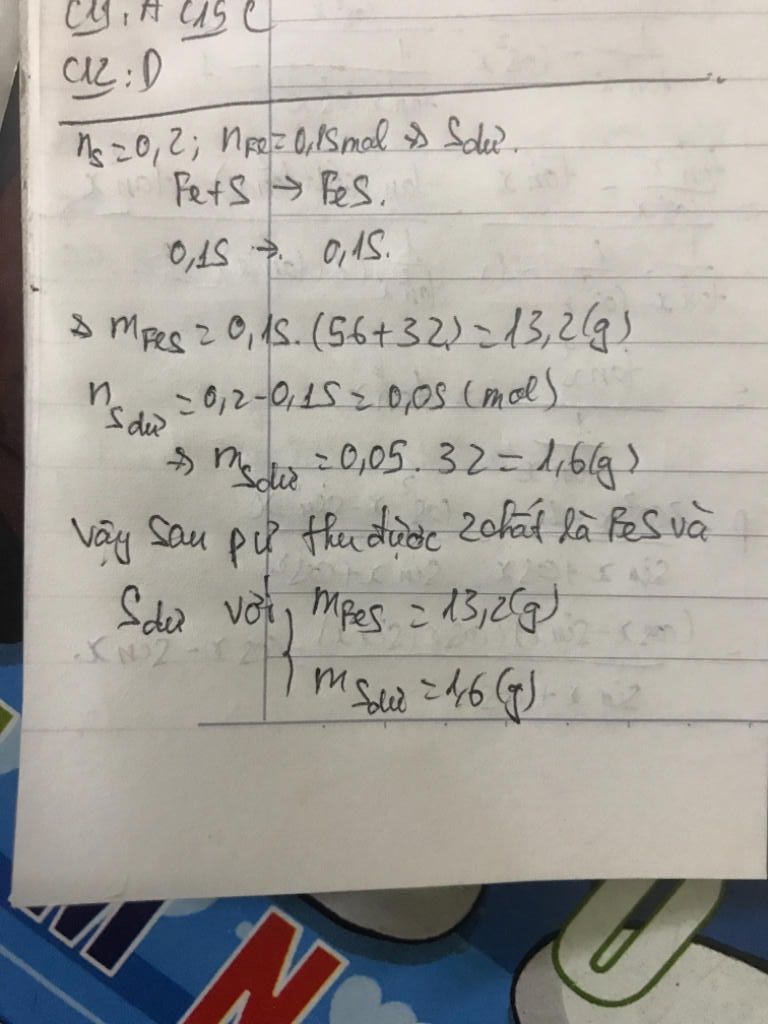 C11: A C15 C
C12: D
nS = 0,2; nFe = 0,15mol => S dư.
Fe + S → FeS.
0,15 → 0,15.
=> mFeS = 0,15. (56+32) = 13,2(g)
nS dư = 0,2 - 0,15 = 0,05 (mol)
=> mS dư = 0,05 . 32 = 1,6(g)
Vậy sau pứ thu được 2 chất là FeS và
S dư với { mFeS = 13,2(g)
mS dư = 1,6 (g)
M N